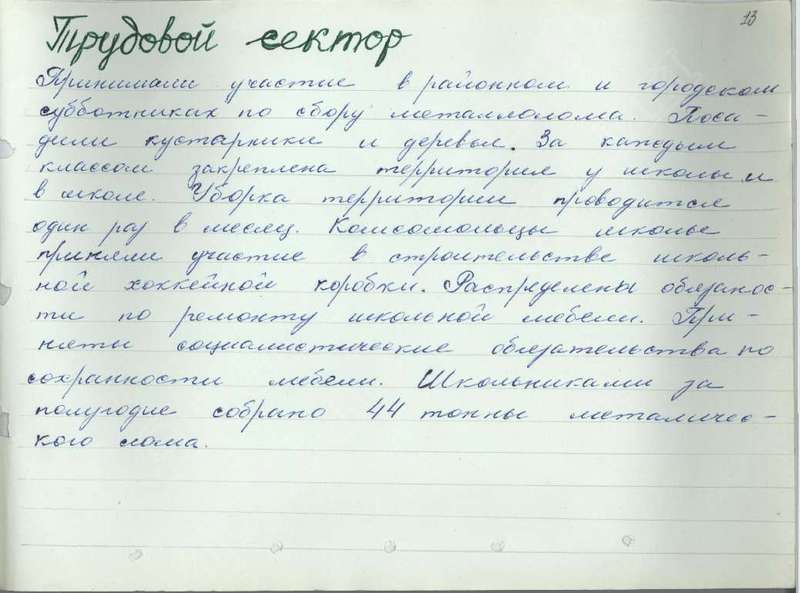 13
Трудовой сектор
Принимали участие в районном и городском
субботниках по сбору металлолома. Поса-
дили кустарники и деревья. За каждым
классом закреплена территория у школы и
в школе. Уборка территории проводится
один раз в месяц. Комсомольцы школы
приняли участие в строительстве школь-
ной хоккейной коробки. Распределены обязанос-
ти по ремонту школьной мебели. При-
няты социалистические обязательства по
сохранности мебели. Школьниками за
полугодие собрано 44 тонны металичес-
кого лома.